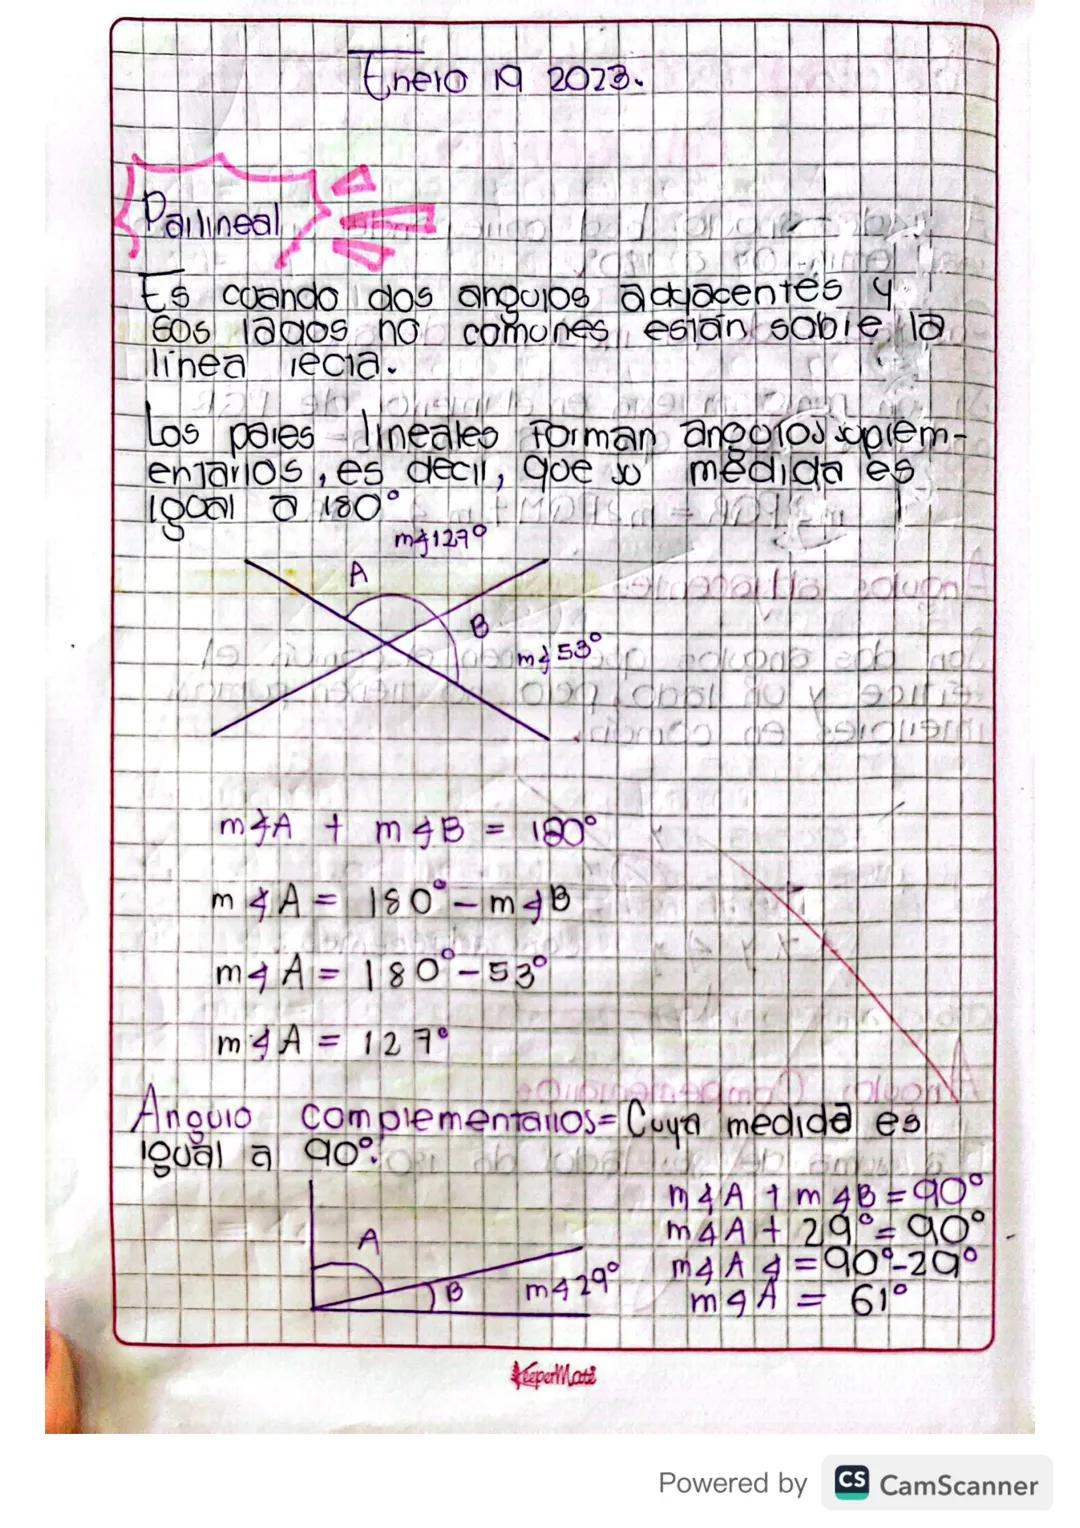 Enero 19 2023.
Par lineal
Es cuando dos angulos adyacentes y
sus lados no comunes están sobre la
línea recta.
Los pares lineales forman angulos suplem-
entarios, es decir, que su medida es
igual a 180°
m∡127°
A
B
m∡53°
m∡A + m∡B = 180°
m∡A = 180° - m∡B
m∡A = 180° - 53°
m∡A = 127°
Angulo complementarios= Cuya medida es
igual a 90°.
m∡A + m∡B = 90°
m∡A + 29° = 90°
A
m∡A ∡ = 90° - 29°
B
m∡29°
m∡A = 61°
KeeperMate
Powered by CS CamScanner